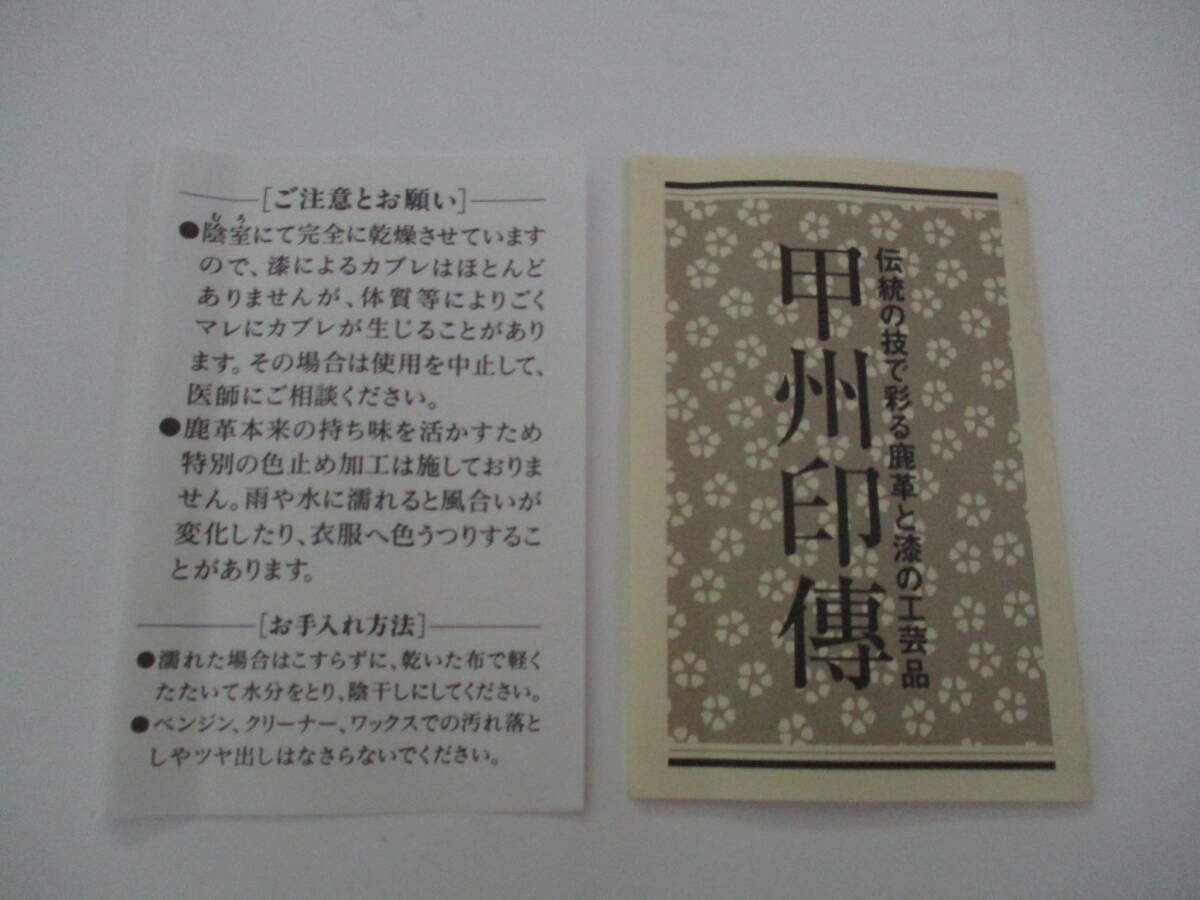 [ご注意とお願い]
●陰室にて完全に乾燥させています
ので、漆によるカブレはほとんど
ありませんが、体質等によりごく
マレにカブレが生じることがあり
ます。その場合は使用を中止して、
医師にご相談ください。
●鹿革本来の持ち味を活かすため
特別の色止め加工は施しておりま
せん。雨や水に濡れると風合いが
変化したり、衣服へ色うつりするこ
とがあります。
[お手入れ方法]
●濡れた場合はこすらずに、乾いた布で軽く
たたいて水分をとり、陰干しにしてください。
●ベンジン、クリーナー、ワックスでの汚れ落と
しやツヤ出しはなさらないでください。
伝統の技で彩る鹿革と漆の工芸品
甲州印傳